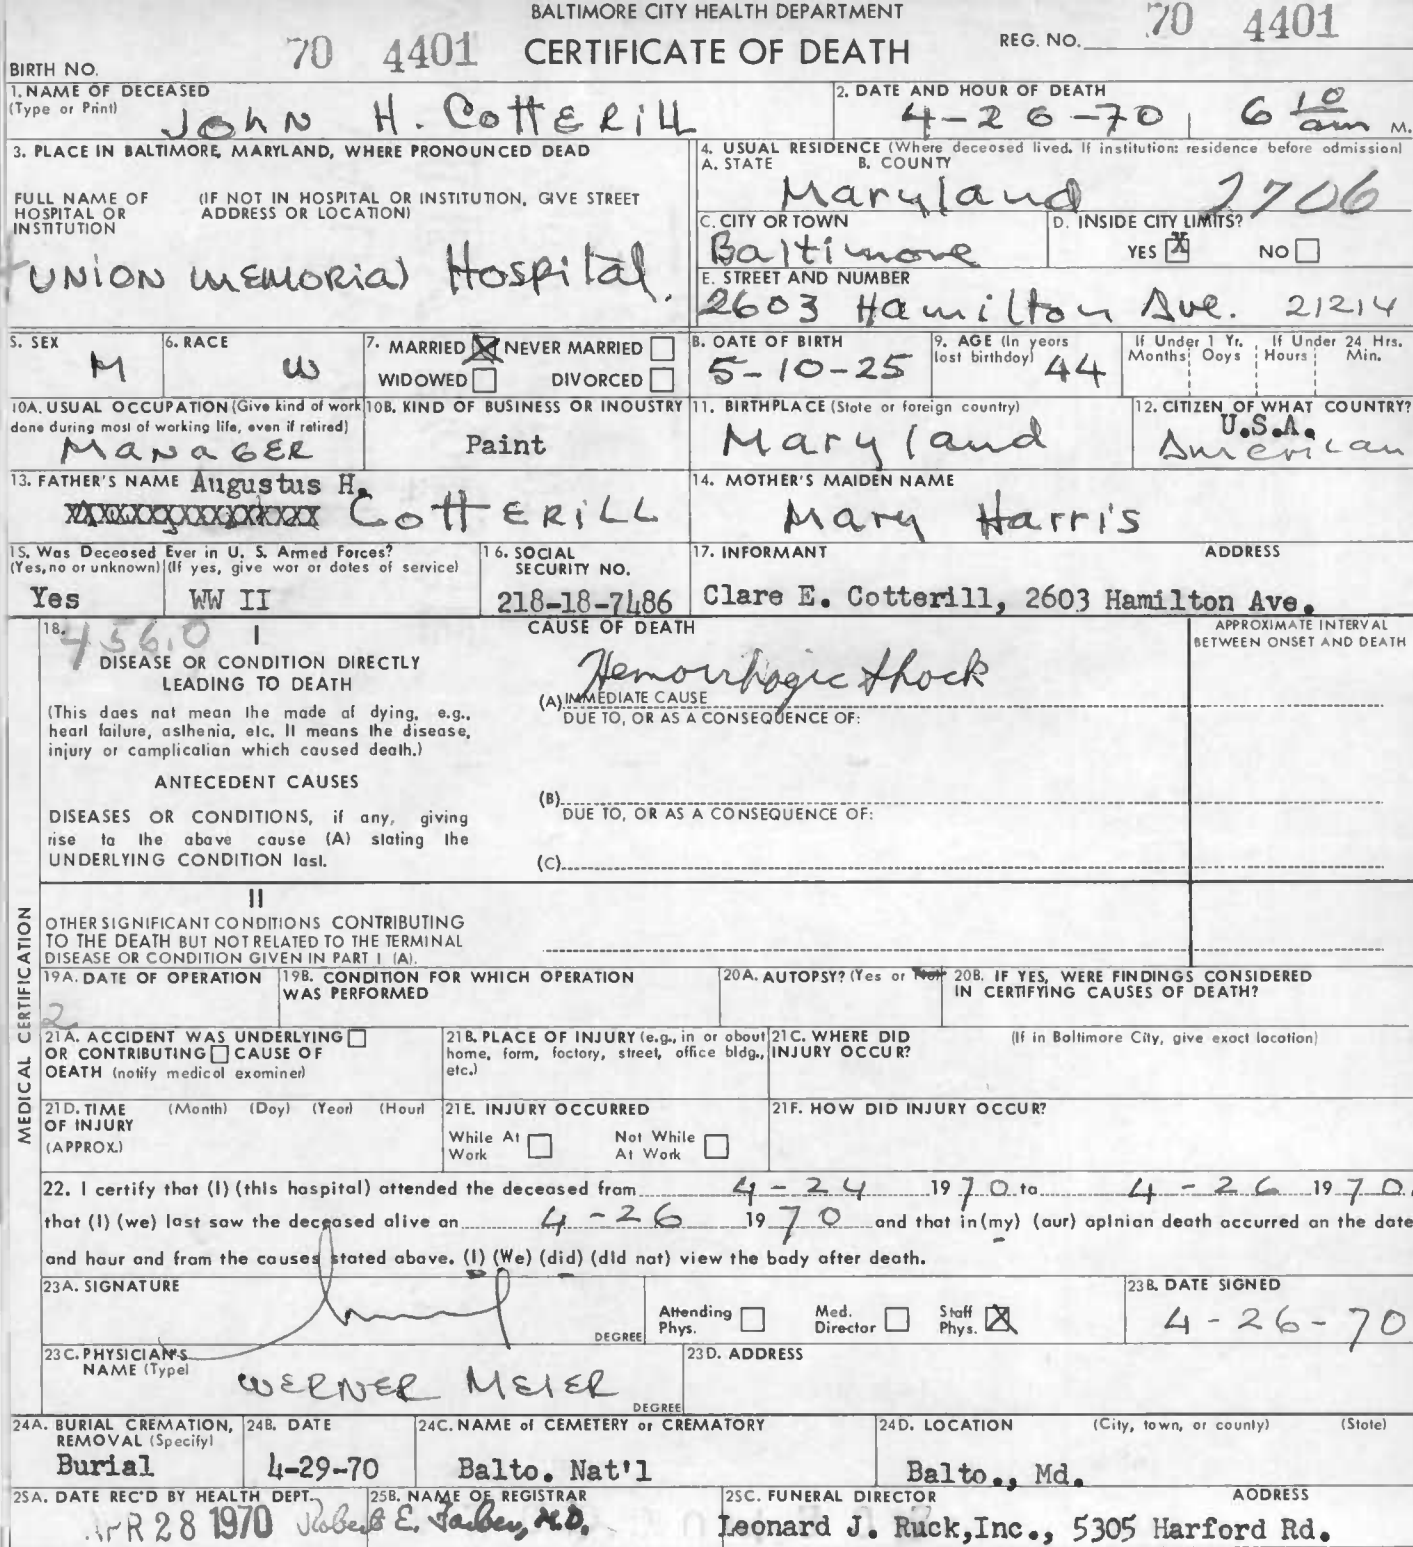 BALTIMORE CITY HEALTH DEPARTMENT
70 4401 CERTIFICATE OF DEATH REG. NO. 70 4401
BIRTH NO.
1. NAME OF DECEASED (Type or Print) John H. Cotterill
2. DATE AND HOUR OF DEATH 4-26-70 6 10 am M.
3. PLACE IN BALTIMORE, MARYLAND, WHERE PRONOUNCED DEAD
FULL NAME OF HOSPITAL OR INSTITUTION (IF NOT IN HOSPITAL OR INSTITUTION, GIVE STREET ADDRESS OR LOCATION)
UNION MEMORIAL Hospital.
4. USUAL RESIDENCE (Where deceased lived. If institution: residence before admission)
A. STATE B. COUNTY
Maryland 2706
C. CITY OR TOWN Baltimore
D. INSIDE CITY LIMITS? YES X NO
E. STREET AND NUMBER
2603 Hamilton Ave. 21214
5. SEX M
6. RACE W
7. MARRIED X NEVER MARRIED
WIDOWED DIVORCED
8. DATE OF BIRTH 5-10-25
9. AGE (In years last birthday) 44
If Under 1 Yr. Months Days If Under 24 Hrs. Hours Min.
10A. USUAL OCCUPATION (Give kind of work done during most of working life, even if retired) MANAGER
10B. KIND OF BUSINESS OR INDUSTRY Paint
11. BIRTHPLACE (State or foreign country) Maryland
12. CITIZEN OF WHAT COUNTRY? U.S.A. American
13. FATHER'S NAME Augustus H.
COTTERILL
14. MOTHER'S MAIDEN NAME
Mary Harris
15. Was Deceased Ever in U. S. Armed Forces?
(Yes, no or unknown) (If yes, give war or dates of service)
Yes WW II
16. SOCIAL SECURITY NO.
218-18-7486
17. INFORMANT ADDRESS
Clare E. Cotterill, 2603 Hamilton Ave.
MEDICAL CERTIFICATION
18. 456.0 I
DISEASE OR CONDITION DIRECTLY
LEADING TO DEATH
(This does not mean the mode of dying, e.g.,
heart failure, asthenia, etc. It means the disease,
injury or complication which caused death.)
ANTECEDENT CAUSES
DISEASES OR CONDITIONS, if any, giving
rise to the above cause (A) stating the
UNDERLYING CONDITION last.
CAUSE OF DEATH
Hemorrhagic shock
(A) IMMEDIATE CAUSE
DUE TO, OR AS A CONSEQUENCE OF:
(B)
DUE TO, OR AS A CONSEQUENCE OF:
(C)
APPROXIMATE INTERVAL
BETWEEN ONSET AND DEATH
II
OTHER SIGNIFICANT CONDITIONS CONTRIBUTING
TO THE DEATH BUT NOT RELATED TO THE TERMINAL
DISEASE OR CONDITION GIVEN IN PART I (A).
19A. DATE OF OPERATION
2
19B. CONDITION FOR WHICH OPERATION
WAS PERFORMED
20A. AUTOPSY? (Yes or No)
20B. IF YES, WERE FINDINGS CONSIDERED
IN CERTIFYING CAUSES OF DEATH?
21A. ACCIDENT WAS UNDERLYING
OR CONTRIBUTING CAUSE OF
DEATH (notify medical examiner)
21B. PLACE OF INJURY (e.g., in or about
home, farm, factory, street, office bldg.,
etc.)
21C. WHERE DID INJURY OCCUR? (If in Baltimore City, give exact location)
21D. TIME OF INJURY (APPROX.) (Month) (Day) (Year) (Hour)
21E. INJURY OCCURRED
While At Work Not While At Work
21F. HOW DID INJURY OCCUR?
22. I certify that (I) (this hospital) attended the deceased from 4-24 1970 to 4-26 1970,
that (I) (we) last saw the deceased alive on 4-26 1970 and that in (my) (our) opinion death occurred on the date
and hour and from the causes stated above. (I) (We) (did) (did not) view the body after death.
23A. SIGNATURE DEGREE
Attending Phys. Med. Director Staff Phys. X
23B. DATE SIGNED
4-26-70
23C. PHYSICIAN'S NAME (Type) WERNER MEIER DEGREE
23D. ADDRESS
24A. BURIAL CREMATION, REMOVAL (Specify)
Burial
24B. DATE
4-29-70
24C. NAME of CEMETERY or CREMATORY
Balto. Nat'l
24D. LOCATION (City, town, or county) (State)
Balto., Md.
25A. DATE REC'D BY HEALTH DEPT.
APR 28 1970
25B. NAME OF REGISTRAR
Robert E. Farber, M.D.
25C. FUNERAL DIRECTOR ADDRESS
Leonard J. Ruck, Inc., 5305 Harford Rd.